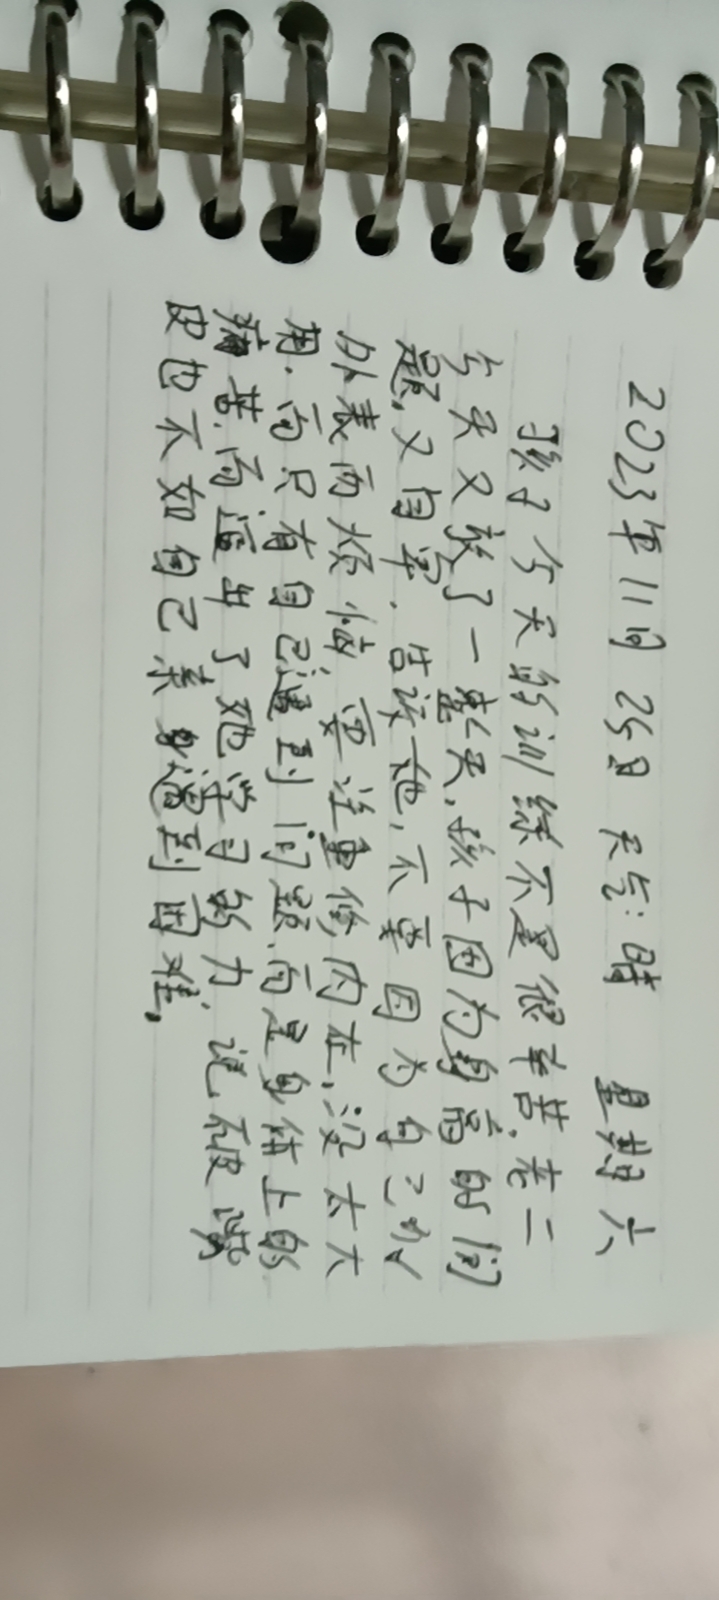 2023年11月25日 天气:晴 星期六
孩子今天的训练不是很辛苦.老二
今天又教了一整天,孩子因为身高的问
题,又自卑.告诉她,不要因为自己的
外表而烦恼,要注重修内在,没太大
用.而只有自己遇到问题.而是身体上的
痛苦.而逼出了她学习的力,说破嘴
皮也不如自己亲身遇到困难.